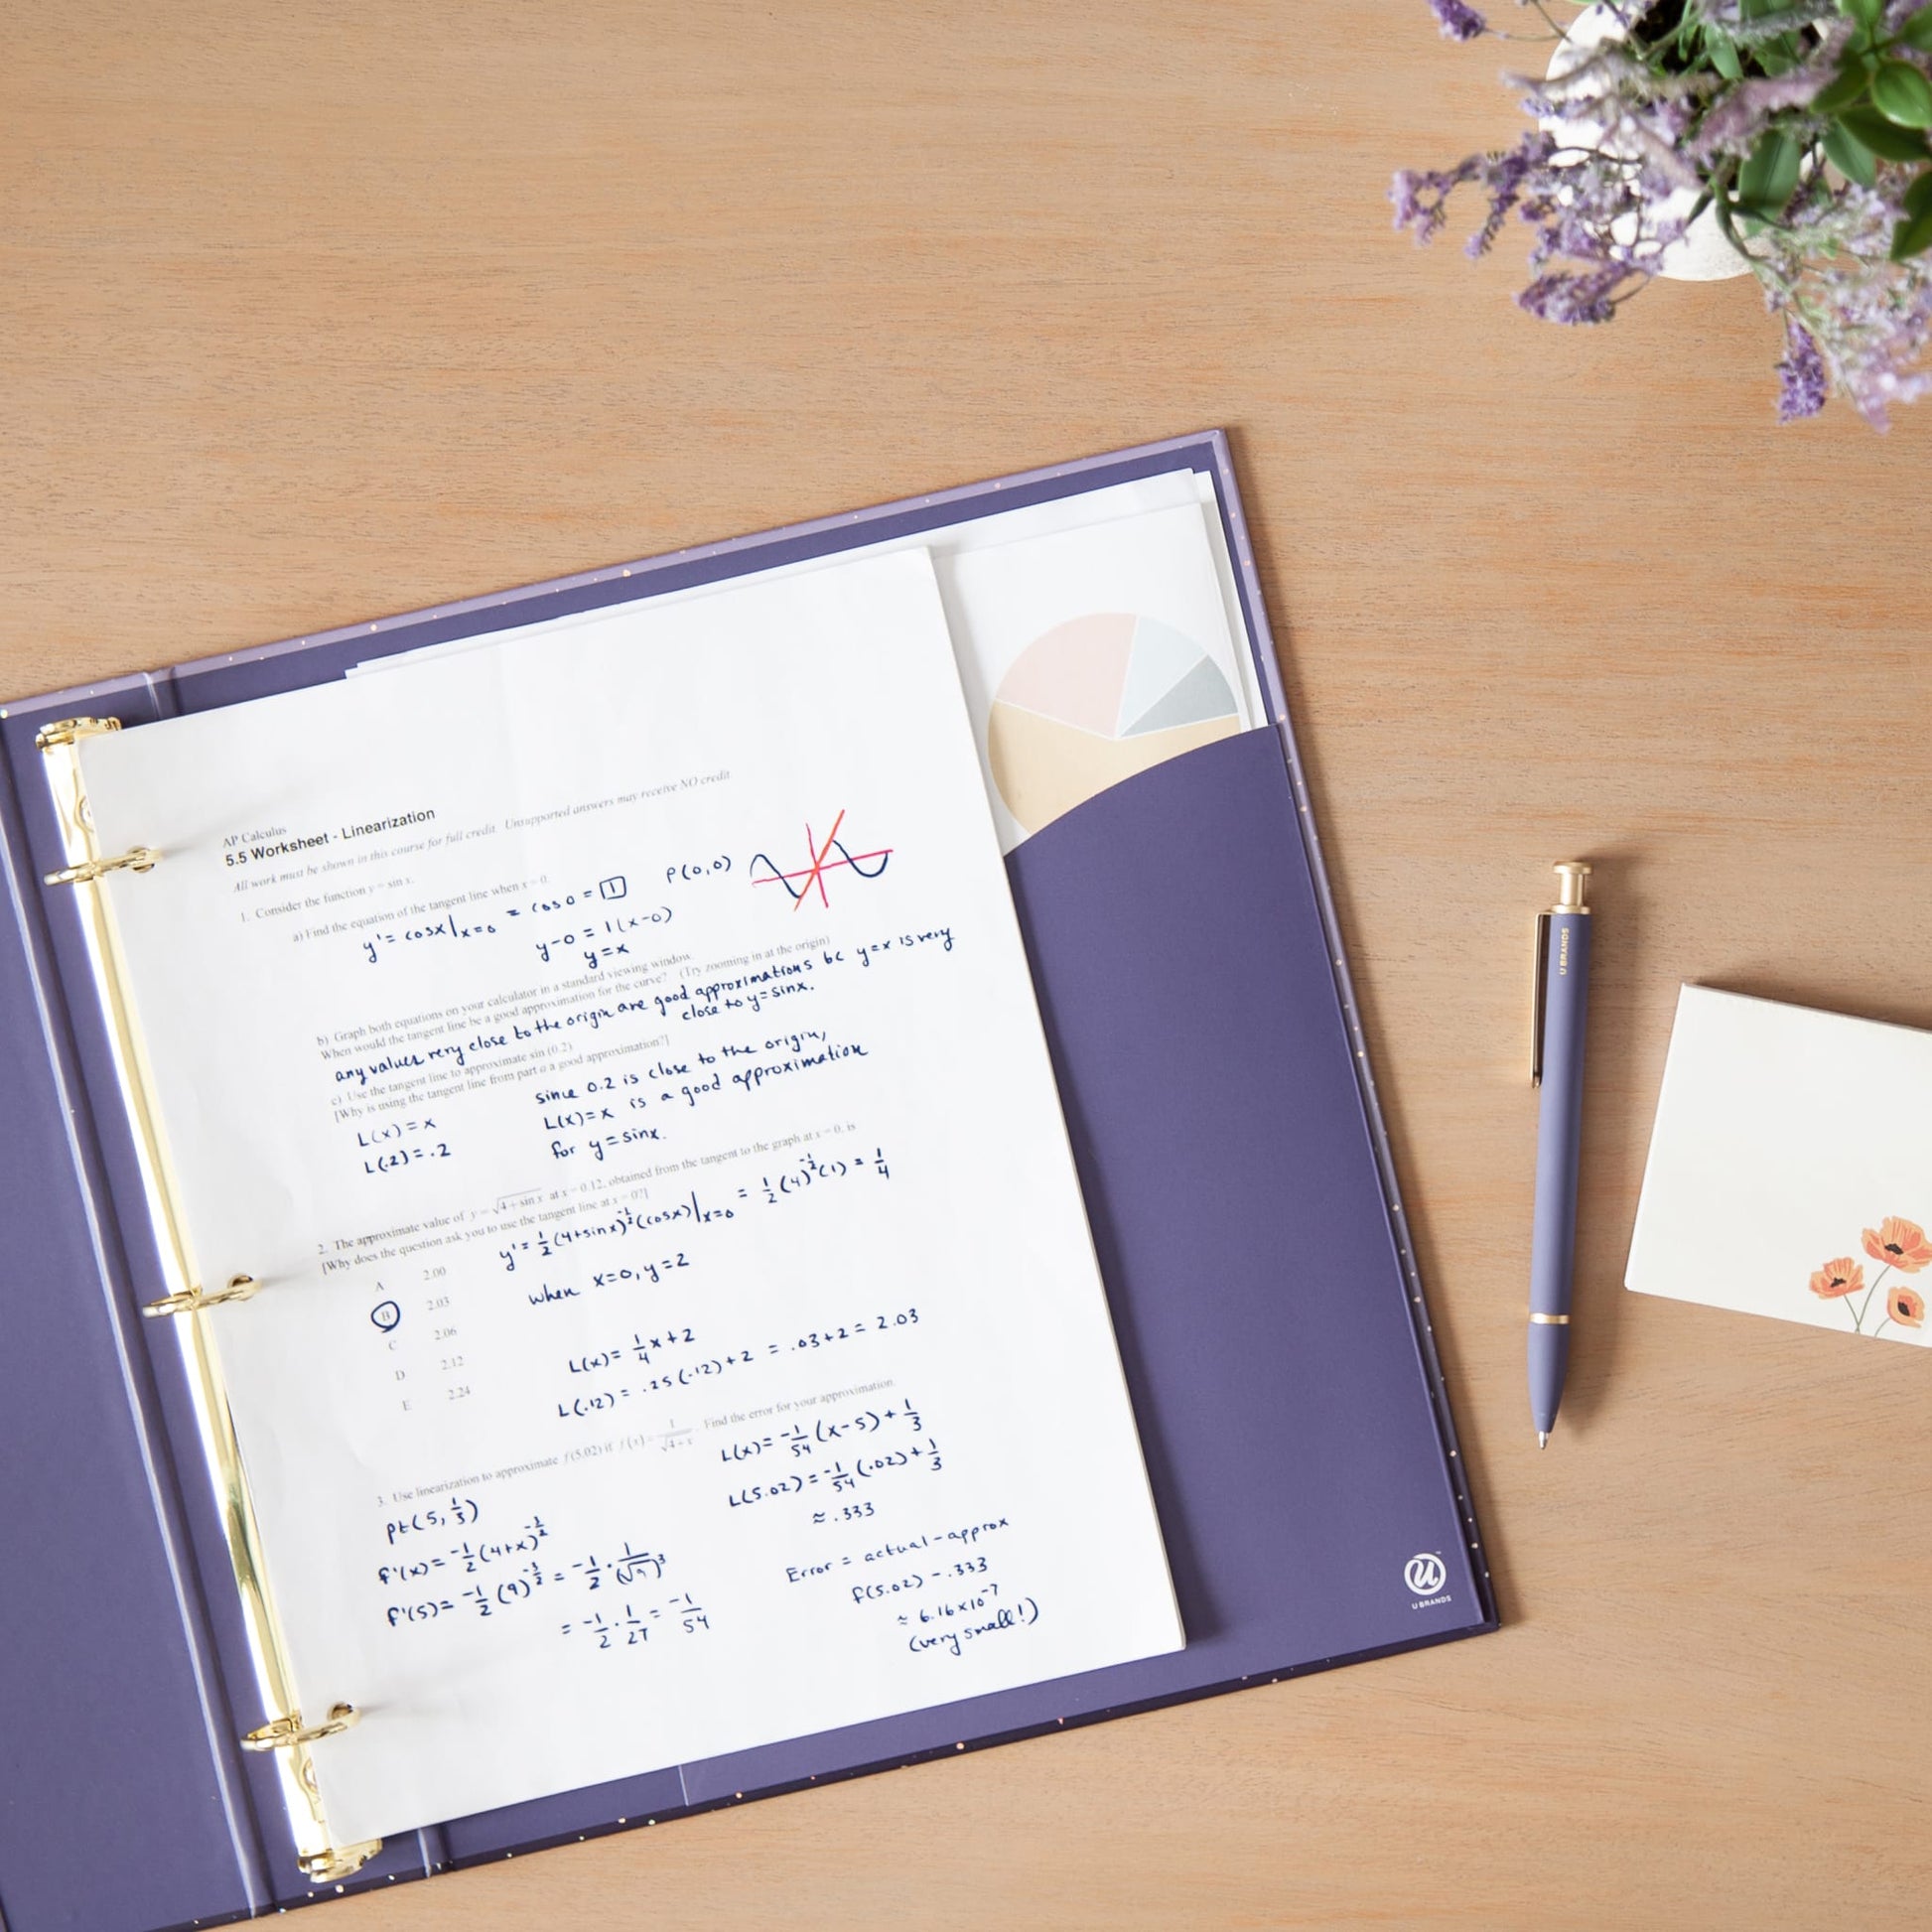 AP Calculus
5.5 Worksheet - Linearization
All work must be shown in this course for full credit. Unsupported answers may receive NO credit
1. Consider the function y = sin x.
a) Find the equation of the tangent line when x = 0.
y' = cosx|x=0 = cos 0 = 1
P(0,0)
y-0 = 1(x-0)
y=x
b) Graph both equations on your calculator in a standard viewing window.
When would the tangent line be a good approximation for the curve? (Try zooming in at the origin)
any values very close to the origin are good approximations bc y=x is very
close to y=sinx.
c) Use the tangent line to approximate sin (0.2)
[Why is using the tangent line from part a a good approximation?]
L(x) = x
L(.2) = .2
since 0.2 is close to the origin,
L(x)=x is a good approximation
for y=sinx.
2. The approximate value of y = √4+sin x at x = 0.12, obtained from the tangent to the graph at x = 0, is
[Why does the question ask you to use the tangent line at x = 0?]
y' = 1/2 (4+sinx)^-1/2 (cosx)|x=0 = 1/2 (4)^-1/2 (1) = 1/4
when x=0, y=2
A 2.00
B 2.03
C 2.06
D 2.12
E 2.24
L(x) = 1/4 x + 2
L(.12) = .25 (.12) + 2 = .03+2 = 2.03
3. Use linearization to approximate f(5.02) if f(x) = 1/√4+x. Find the error for your approximation.
pt (5, 1/3)
f'(x) = -1/2 (4+x)^-3/2
f'(5) = -1/2 (9)^-3/2 = -1/2 · 1/(√9)^3
= -1/2 · 1/27 = -1/54
L(x) = -1/54 (x-5) + 1/3
L(5.02) = -1/54 (.02) + 1/3
≈ .333
Error = actual - approx
f(5.02) - .333
≈ 6.16 x 10^-7
(very small!)
U BRANDS
U BRANDS